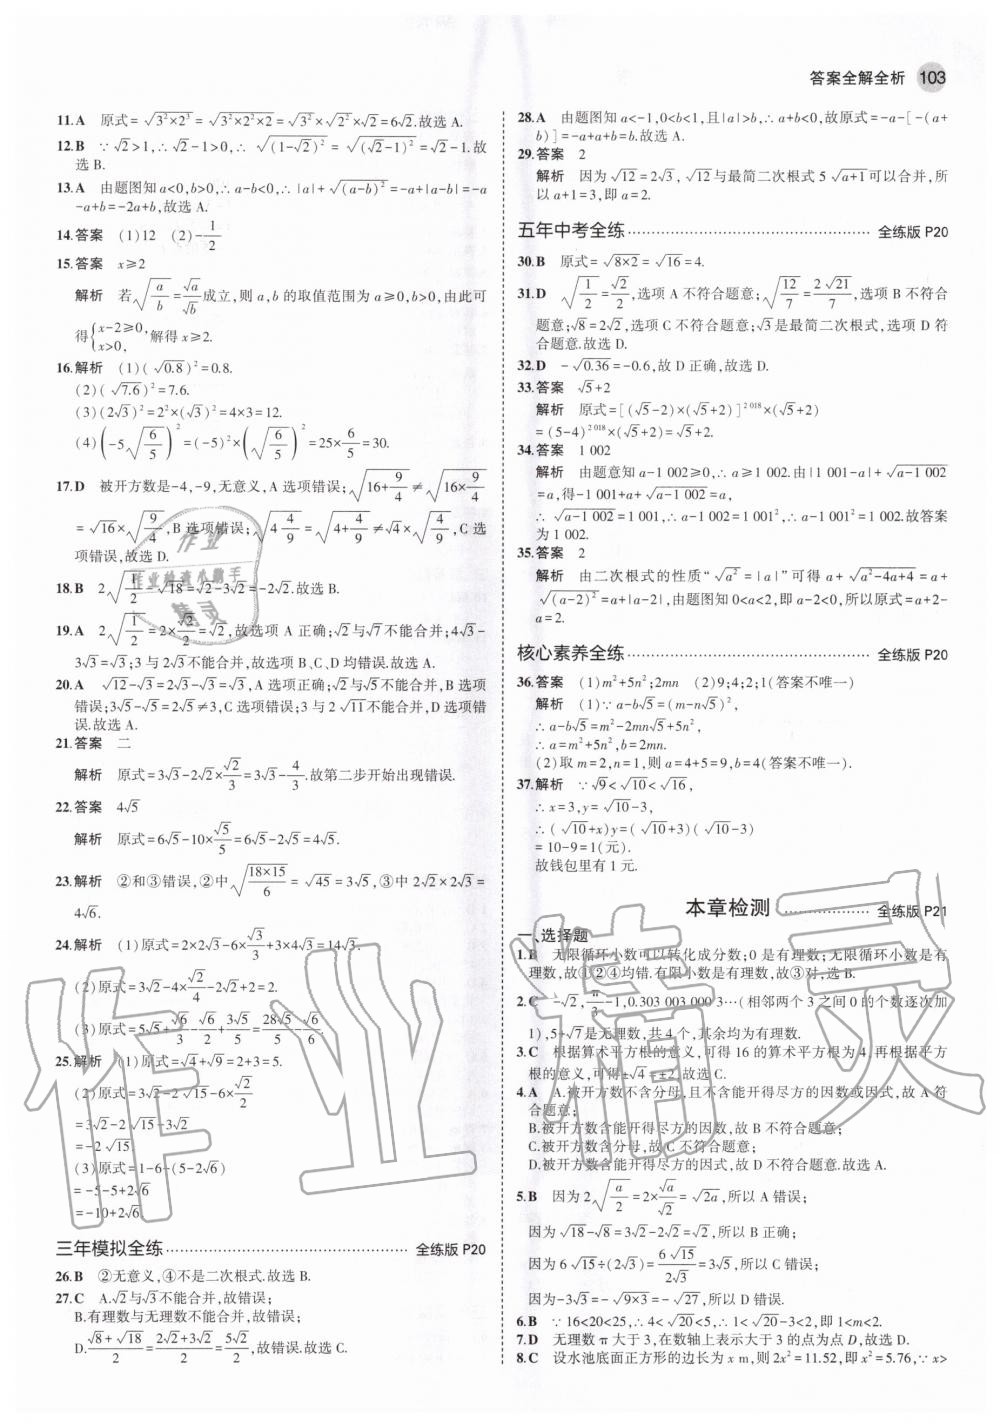 答案全解全析 103
11.A 原式=√(3²×2³)=√(3²×2²×2)=√3²×√2²×√2=6√2.故选 A.
12.B ∵√2>1,∴√2-1>0,∴√((1-√2)²)=√((√2-1)²)=√2-1.故
选 B.
13.A 由题图知 a<0,b>0,∴a-b<0,∴|a|+√((a-b)²)=-a+|a-b|=-a
-a+b=-2a+b,故选 A.
14.答案 (1)12 (2)-1/2
15.答案 x≥2
解析 若√(a/b)=√a/√b成立,则 a,b 的取值范围为 a≥0,b>0,由此可
得{x-2≥0, x>0, 解得 x≥2.
16.解析 (1)(√0.8)²=0.8.
(2)(√7.6)²=7.6.
(3)(2√3)²=2²×(√3)²=4×3=12.
(4)(-5√(6/5))²=(-5)²×(√(6/5))²=25×6/5=30.
17.D 被开方数是-4,-9,无意义,A 选项错误;√(16+9/4)≠√(16×9/4)
=√16×√(9/4),B 选项错误;√(4 4/9)=√(4+4/9)≠√4×√(4/9),C 选
项错误,故选 D.
18.B 2√(1/2)-√18=√2-3√2=-2√2.故选 B.
19.A 2√(1/2)=2×√2/2=√2,故选项 A 正确;√2与√7不能合并;4√3-
3√3=√3;3 与 2√3不能合并,故选项 B、C、D 均错误.故选 A.
20.A √12-√3=2√3-√3=√3,A 选项正确;√2与√5不能合并,B 选项
错误;3√5-√5=2√5≠3,C 选项错误;3 与 2√11不能合并,D 选项错
误.故选 A.
21.答案 二
解析 原式=3√3-2√2×√2/3=3√3-4/3.故第二步开始出现错误.
22.答案 4√5
解析 原式=6√5-10×√5/5=6√5-2√5=4√5.
23.解析 ②和③错误,②中√(18×15/6)=√45=3√5,③中 2√2×2√3=
4√6.
24.解析 (1)原式=2×2√3-6×√3/3+3×4√3=14√3.
(2)原式=3√2-4×√2/4-2√2+2=2.
(3)原式=5√5+√6/3-√6/2+3√5/5=28√5/5-√6/6.
25.解析 (1)原式=√4+√9=2+3=5.
(2)原式=3√2-2√15-6×√2/2
=3√2-2√15-3√2
=-2√15.
(3)原式=1-6-(5-2√6)
=-5-5+2√6
=-10+2√6.
三年模拟全练 全练版 P20
26.B ②无意义,④不是二次根式.故选 B.
27.C A.√2与√3不能合并,故错误;
B.有理数与无理数不能合并,故错误;
D.(√8+√18)/2=(2√2+3√2)/2=5√2/2,故错误.故选 C.
28.A 由题图知 a<-1,0<b<1,且|a|>b,∴a+b<0,故原式=-a-[-(a+
b)]=-a+a+b=b.故选 A.
29.答案 2
解析 因为√12=2√3,√12与最简二次根式 5√(a+1)可以合并,所
以 a+1=3,即 a=2.
五年中考全练 全练版 P20
30.B 原式=√(8×2)=√16=4.
31.D √(1/2)=√2/2,选项 A 不符合题意;√(12/7)=2√21/7,选项 B 不符合
题意;√8=2√2,选项 C 不符合题意;√3是最简二次根式,选项 D 符
合题意.故选 D.
32.D -√0.36=-0.6,故 D 正确,故选 D.
33.答案 √5+2
解析 原式=[(√5-2)×(√5+2)]^2 018×(√5+2)
=(5-4)^2 018×(√5+2)=√5+2.
34.答案 1 002
解析 由题意知 a-1 002≥0,∴a≥1 002.由|1 001-a|+√(a-1 002)
=a,得-1 001+a+√(a-1 002)=a,
∴√(a-1 002)=1 001,∴a-1 002=1 001²,∴a-1 001²=1 002.故答案
为 1 002.
35.答案 2
解析 由二次根式的性质“√a²=|a|”可得 a+√(a²-4a+4)=a+
√((a-2)²)=a+|a-2|,由题图知 0<a<2,即 a-2<0,所以原式=a+2-
a=2.
核心素养全练 全练版 P20
36.答案 (1)m²+5n²;2mn (2)9;4;2;1(答案不唯一)
解析 (1)∵a-b√5=(m-n√5)²,
∴a-b√5=m²-2mn√5+5n²,
∴a=m²+5n²,b=2mn.
(2)取 m=2,n=1,则 a=4+5=9,b=4(答案不唯一).
37.解析 ∵√9<√10<√16,
∴x=3,y=√10-3,
∴(√10+x)y=(√10+3)(√10-3)
=10-9=1(元).
故钱包里有 1 元.
本章检测 全练版 P21
一、选择题
1.B 无限循环小数可以转化成分数;0 是有理数;无限循环小数是有
理数,故①②④均错.有限小数是有理数,故③对,选 B.
2.C -√2,π/3-1,0.303 003 000 3…(相邻两个 3 之间 0 的个数逐次加
1),5+√7是无理数,共 4 个,其余均为有理数.
3.C 根据算术平方根的意义,可得 16 的算术平方根为 4,再根据平方
根的意义,可得±√4=±2.故选 C.
4.A A.被开方数不含分母,且不含能开得尽方的因数或因式,故 A 符
合题意;
B.被开方数含能开得尽方的因数,故 B 不符合题意;
C.被开方数含分母,故 C 不符合题意;
D.被开方数含能开得尽方的因式,故 D 不符合题意.故选 A.
5.B 因为 2√(a/2)=2×√a/√2=√(2a),所以 A 错误;
因为√18-√8=3√2-2√2=√2,所以 B 正确;
因为 6√15÷(2√3)=6√15/2√3=3√5,所以 C 错误;
因为-3√3=-√(9×3)=-√27,所以 D 错误.
6.B ∵16<20<25,∴4<√20<5,∴1<√20-3<2,即 1<m<2.
7.D 无理数 π 大于 3,在数轴上表示大于 3 的点为点 D,故选 D.
8.C 设水池底面正方形的边长为 x m,则 2x²=11.52,即 x²=5.76,∵x>
作业
作业检查小助手
精灵
作业精灵